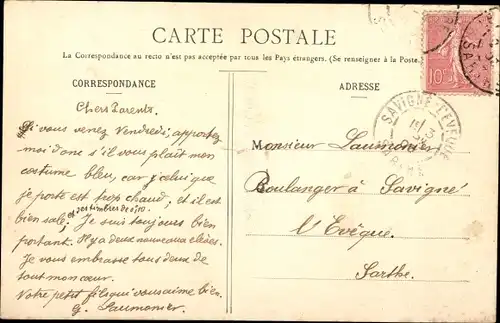 CARTE POSTALE
La Correspondance au recto n'est pas acceptée par tous les Pays étrangers. (Se renseigner à la Poste.)
CORRESPONDANCE
Chers Parents
Si vous venez Vendredi, apportez
moi donc s'il vous plaît mon
costume bleu, car celui que
je porte est trop chaud, et il est
bien sale, et des timbres de 0,10. Je suis toujours bien
portant. Il y a deux nouveaux élèves.
Je vous embrasse tous deux de
tout mon cœur.
Votre petit fils qui vous aime bien.
G. Saumonier.
ADRESSE
Monsieur Saumonier
Boulanger à Savigné
l'Evêque.
Sarthe.
SAVIGNÉ-L'EVEQUE
10c